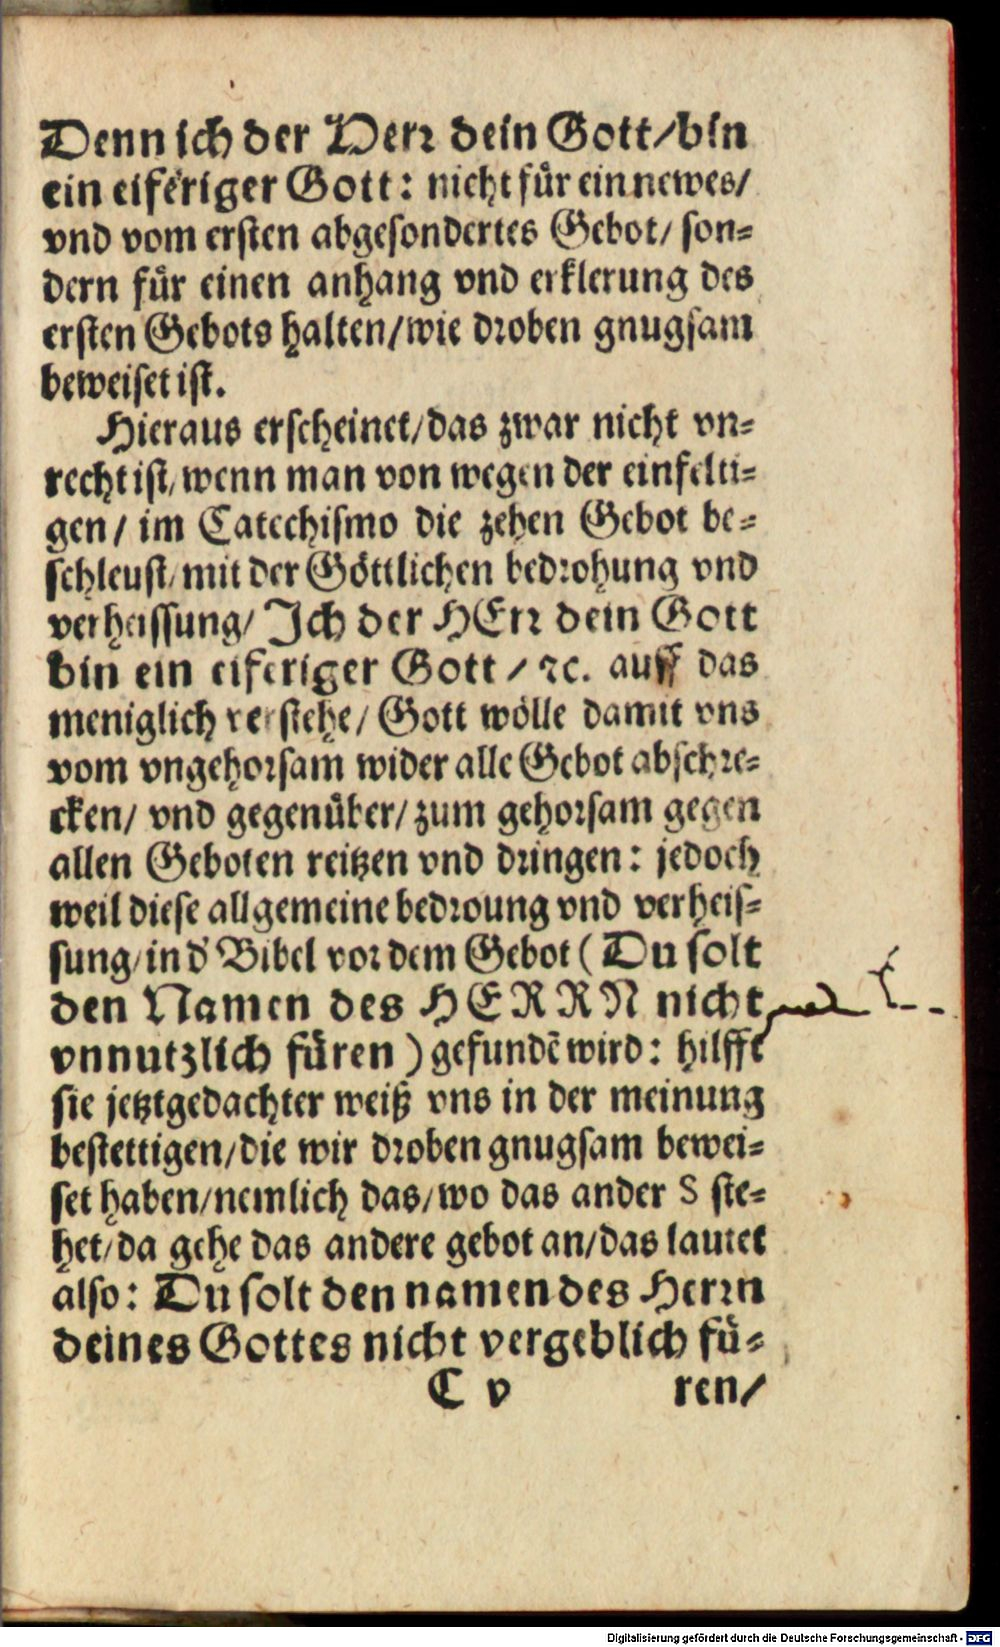 Denn ich der Herr dein Gott/bin
ein eiferiger Gott: nicht für ein newes/
vnd vom ersten abgesondertes Gebot/ son-
dern für einen anhang vnd erklerung des
ersten Gebots halten/wie droben gnugsam
beweiset ist.
Hieraus erscheinet/das zwar nicht vn-
recht ist/wenn man von wegen der einfelti-
gen/ im Catechismo die zehen Gebot be-
schleust/mit der Göttlichen bedrohung vnd
verheissung/ Ich der HErr dein Gott
bin ein eiferiger Gott/ ꝛc. auff das
meniglich verstehe/ Gott wölle damit vns
vom vngehorsam wider alle Gebot abschre-
cken/ vnd gegenüber/zum gehorsam gegen
allen Geboten reitzen vnd dringen: jedoch
weil diese allgemeine bedroung vnd verheis-
sung/in d' Bibel vor dem Gebot (Du solt
den Namen des HERRN nicht
vnnutzlich füren) gefundē wird: hilfft
sie jetztgedachter weiß vns in der meinung
bestettigen/die wir droben gnugsam bewei-
set haben/nemlich das/wo das ander S ste-
het/da gehe das andere gebot an/das lautet
also: Du solt den namen des Herrn
deines Gottes nicht vergeblich fü-
C v ren/
Digitalisierung gefördert durch die Deutsche Forschungsgemeinschaft - DFG